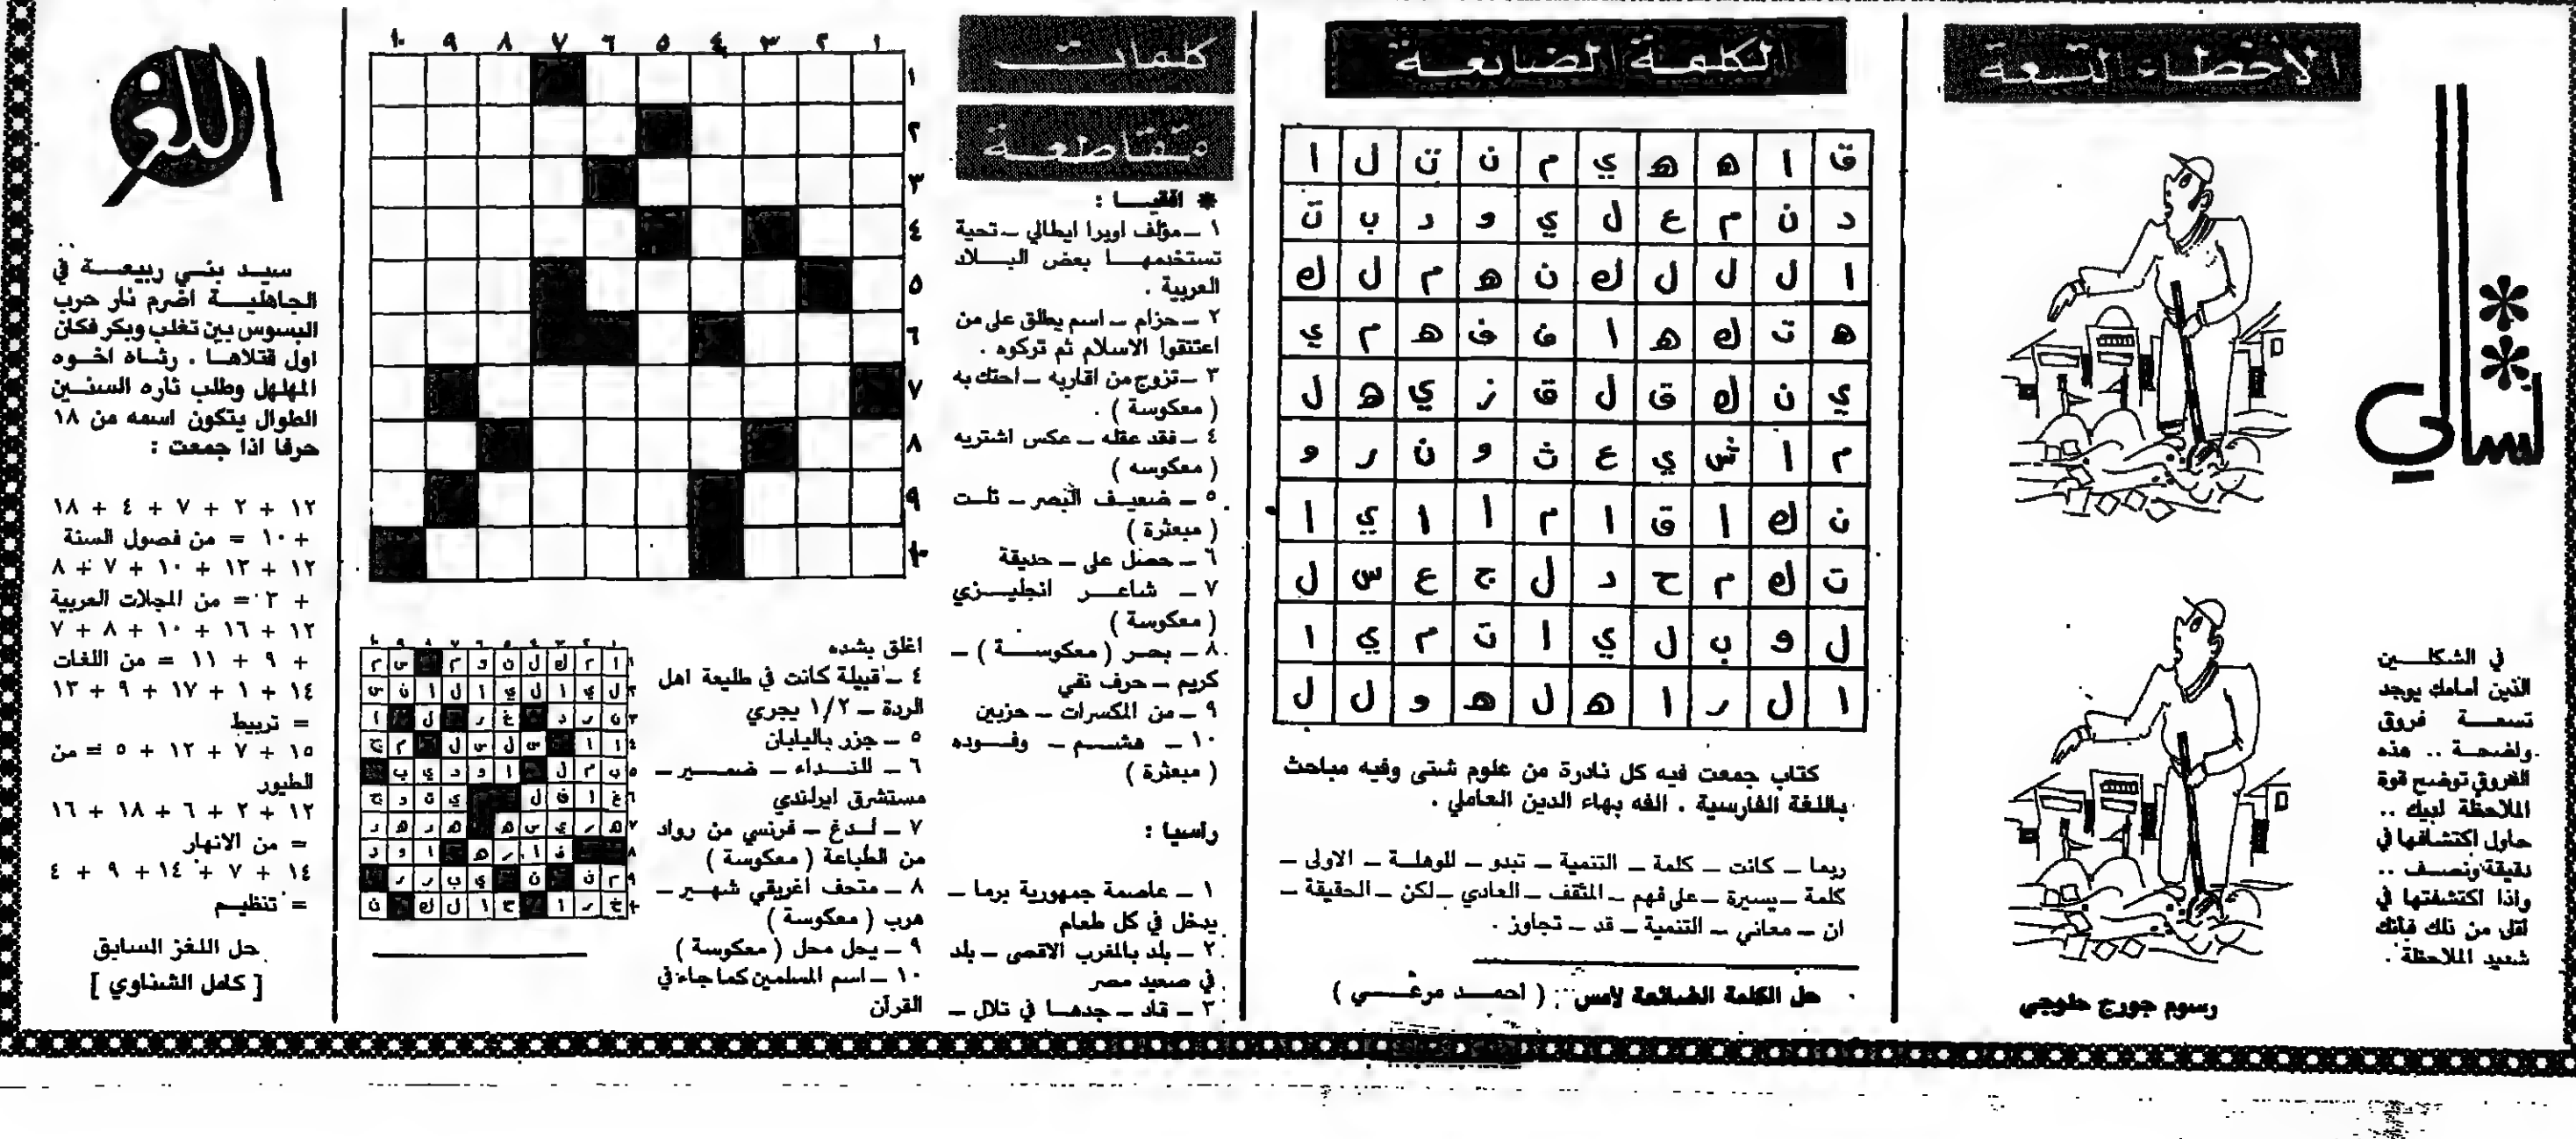 الاخطاء التسعة
نسالي
في الشكلين
الذين أمامك يوجد
تسعة فروق
واضحة .. هذه
الفروق توضح قوة
الملاحظة لديك ..
حاول اكتشافها في
دقيقة ونصف ..
واذا اكتشفتها في
أقل من ذلك فأنك
شديد الملاحظة .
رسوم جورج حلوجي
الكلمة الضائعة
ق ا ه ه ي م ن ت ل ا
د ن م ع ل ي و د ب ت
ا ل ل ل ك ن ه م ل ك
ه ت ك ه ا ف ف ه م ي
ي ن ك ق ل ق ز ي ه ل
م ا ش ي ع ث و ن ر و
ن ك ا ق ا م ا ا ي ا
ت ك م ح د ل ج ع س ل
ل و ب ل ي ا ت م ي ا
ا ل ر ا ه ل ه و ل ل
كتاب جمعت فيه كل نادرة من علوم شتى وفيه مباحث
باللغة الفارسية . الفه بهاء الدين العاملي .
ربما – كانت – كلمة – التنمية – تبدو – للوهلة – الاولى –
كلمة – يسيرة – على فهم – المثقف – العادي – لكن – الحقيقة –
ان – معاني – التنمية – قد – تجاوز .
حل الكلمة الضائعة لأمس : ( أحمد مرعي )
كلمات
متقاطعة
* افقيا :
١ – مؤلف اوبرا ايطالي – تحية
تستخدمها بعض البلاد
العربية .
٢ – حزام – اسم يطلق على من
اعتنقوا الاسلام ثم تركوه .
٣ – تزوج من اقاربه – احتك به
( معكوسة ) .
٤ – فقد عقله – عكس اشتريه
( معكوسه )
٥ – ضعيف البصر – ثلث
( مبعثرة )
٦ – حصل على – حديقة
٧ – شاعر انجليزي
( معكوسة )
٨ – بحر ( معكوسة ) –
كريم – حرف نفي
٩ – من المكسرات – حزبين
١٠ – هشم – وفوده
( مبعثرة )
رأسيا :
١ – عاصمة جمهورية برما –
يدخل في كل طعام
٢ – بلد بالمغرب الاقصى – بلد
في صعيد مصر
٣ – قاد – جدها في تلال –
اغلق بشده
٤ – قبيلة كانت في طليعة اهل
الردة – ١/٢ يجري
٥ – جزر باليابان
٦ – للنداء – ضمير –
مستشرق ايرلندي
٧ – لدغ – فرنسي من رواد
من الطباعة ( معكوسة )
٨ – متحف اغريقي شهير –
هرب ( معكوسة )
٩ – يحل محل ( معكوسة )
١٠ – اسم المسلمين كما جاء في
القرآن
١ ٢ ٣ ٤ ٥ ٦ ٧ ٨ ٩ ١٠
١
٢
٣
٤
٥
٦
٧
٨
٩
١٠
اللغز
سيد بني ربيعة في
الجاهلية اضرم نار حرب
البسوس بين تغلب وبكر فكان
اول قتلاها . رثاه اخوه
المهلهل وطلب ثاره السنين
الطوال يتكون اسمه من ١٨
حرفا اذا جمعت :
١٢ + ٢ + ٧ + ٤ + ١٨
+ ١٠ = من فصول السنة
١٢ + ١٣ + ١٠ + ٧ + ٨
+ ٣ = من المجلات العربية
١٢ + ١٦ + ١٠ + ٨ + ٧
+ ٩ + ١١ = من اللغات
١٤ + ١ + ١٧ + ٩ + ١٣
= تربيط
١٥ + ٧ + ١٢ + ٥ = من
الطيور
١٢ + ٢ + ٦ + ١٨ + ١٦
= من الانهار
١٤ + ٧ + ١٤ + ٩ + ٤
= تنظيم
حل اللغز السابق
[ كامل الشناوي ]